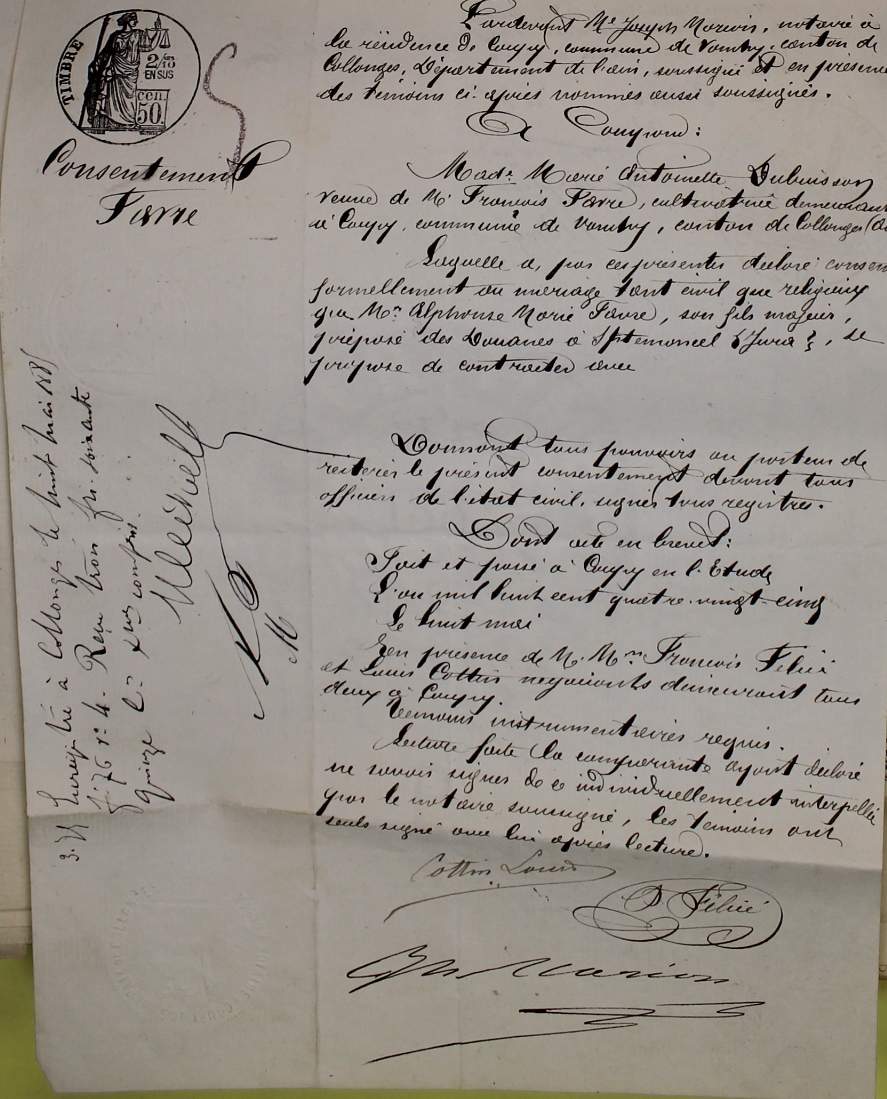 TIMBRE
2/10
EN SUS
cen.
50.
Consentement
Favre
Pardevant Me Joseph Marion, notaire à
la résidence de Coupy, commune de Vanchy, canton de
Collonges, Département de l'ain, soussigné et en présence
des témoins ci-après nommés aussi soussignés.
A Comparu:
Made Marie Antoinette Dubuisson
veuve de Mr François Favre, cultivatrice demeurant
à Coupy, commune de Vanchy, canton de Collonges
Laquelle a, par ces présentes déclaré consen
formellement au mariage tant civil que religieux
que Mr Alphonse Marie Favre, son fils majeur,
préposé des Douanes à Septmoncel (Jura), se
propose de contracter avec
Donnant tous pouvoirs au porteur de
réitérer le présent consentement devant tous
officiers de l'état civil, signer tous registres.
Dont acte en brevet:
Fait et passé à Coupy en l'Etude
L'an mil huit cent quatre-vingt-cinq
Le huit mai
En présence de M. Mrs François Félix
et Louis Cottin négociants demeurant tous
deux à Coupy.
Témoins instrumentaires requis.
Lecture faite la comparante ayant déclaré
ne savoir signer de ce individuellement interpellée
par le notaire soussigné, les témoins ont
seuls signé avec lui après lecture.
Cottin Louis
Félix
Marion
Enregistré à Collonges le huit mai 1885
fo 76 ro c 4. Reçu trois frs soixante
quinze cs compris
3.75